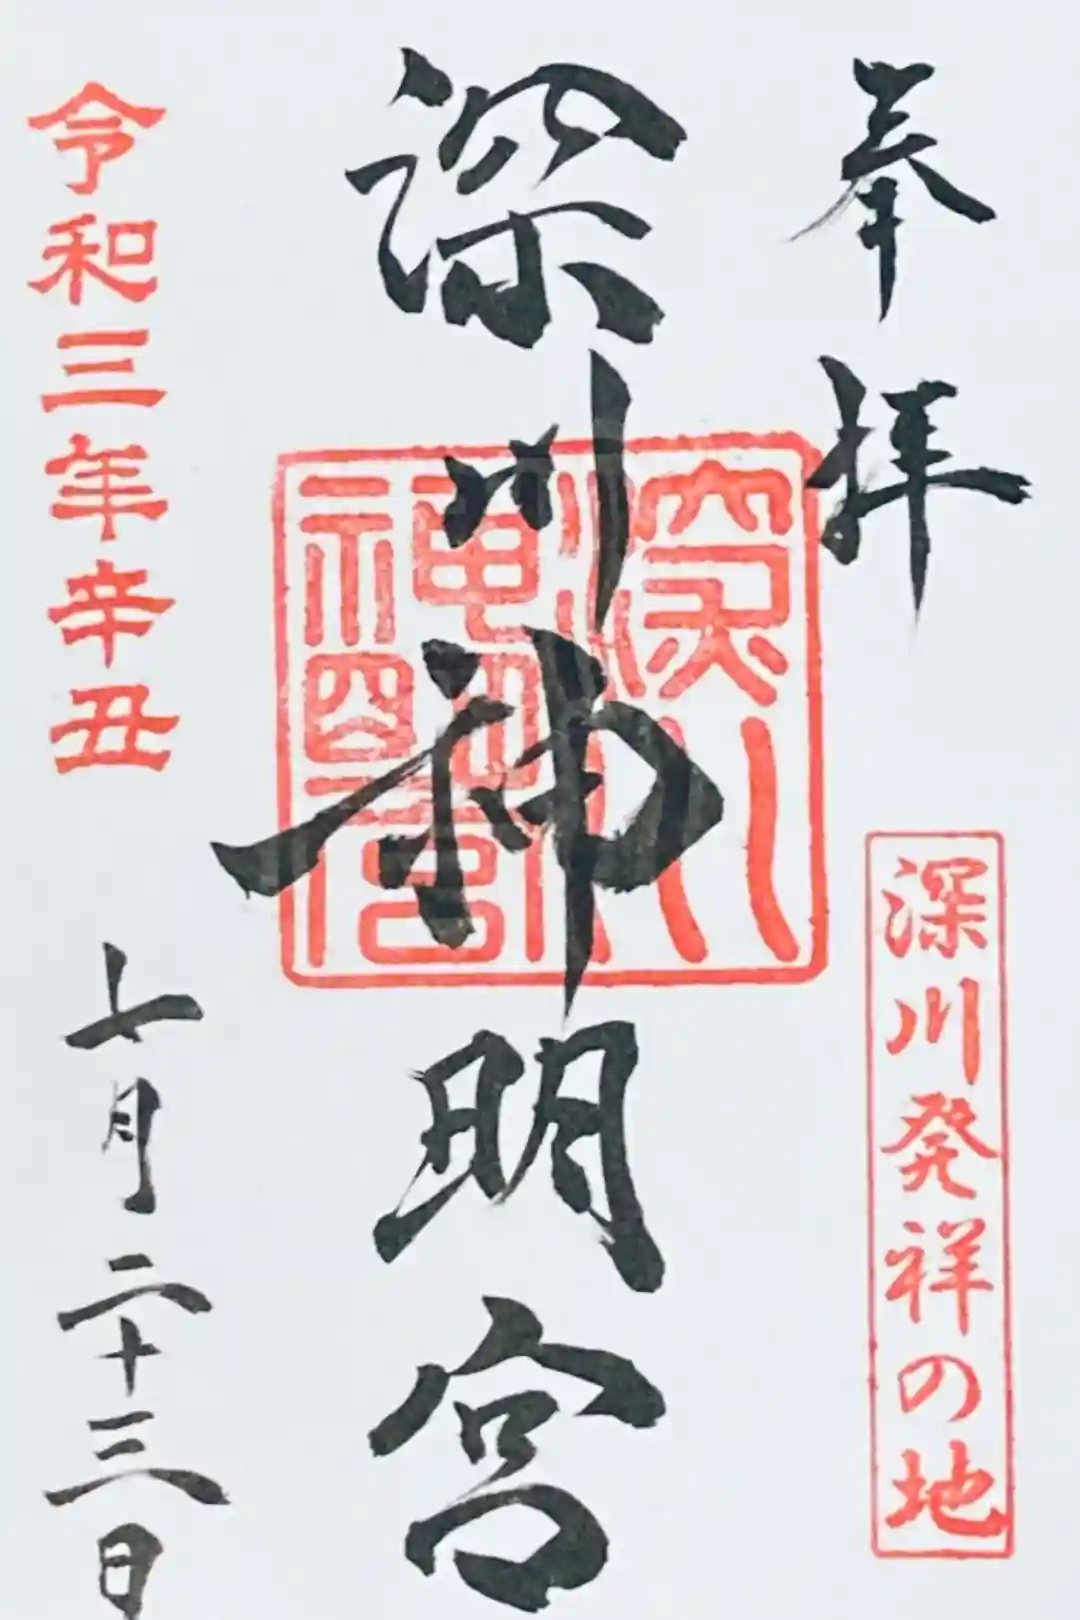 奉拝
深川発祥の地
深川神明宮
深川
神明
宮
令和三年辛丑
七月二十三日